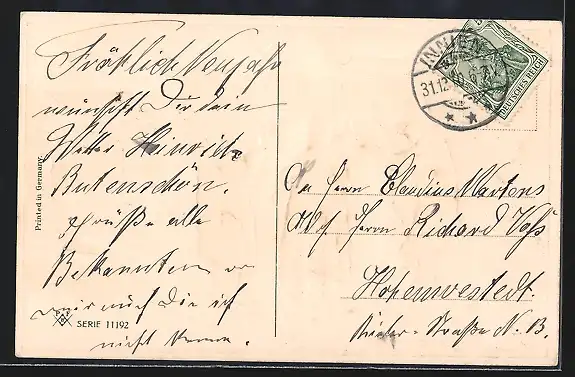 Fröhlich Neujahr
wünscht Dir dein
Vetter Hinrich
Butenschön.
grüße alle
Bekannten
mir auch die ich
nicht kenne.
Printed in Germany
SERIE 11192
INNIEN
31.12
DEUTSCHES REICH
An Herrn Claudius Martens
Adr. Herrn Richard Voß
Hohenwestedt.
Kieler-Straße N. 13.